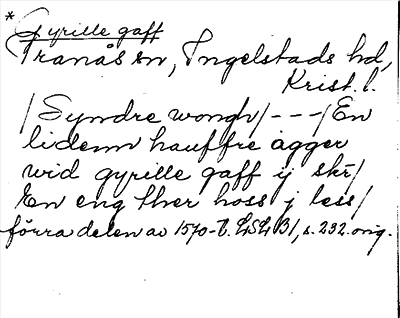 * Gyrille gaff
Tranås sn, Ingelstads hd,
Krist. l.
/Syndre wongh/---/En
lidenn hauffre agger
wid gyrille gaff ij skr/
En eng ther hoss j less/
förra delen av 1570-t. LSL B1, s. 232. orig.